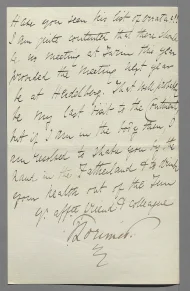 Have you seen his list of errata?
I am quite contented that there should
be no meeting at Turin this year
provided the Meeting next year
be at Heidelberg. That will, probably
be my last visit to the Continent
but if I am in the City then I
am resolved to shake you by the
hand in the Fatherland & to drink
your health out of the Tun
Yr affte friend & colleague